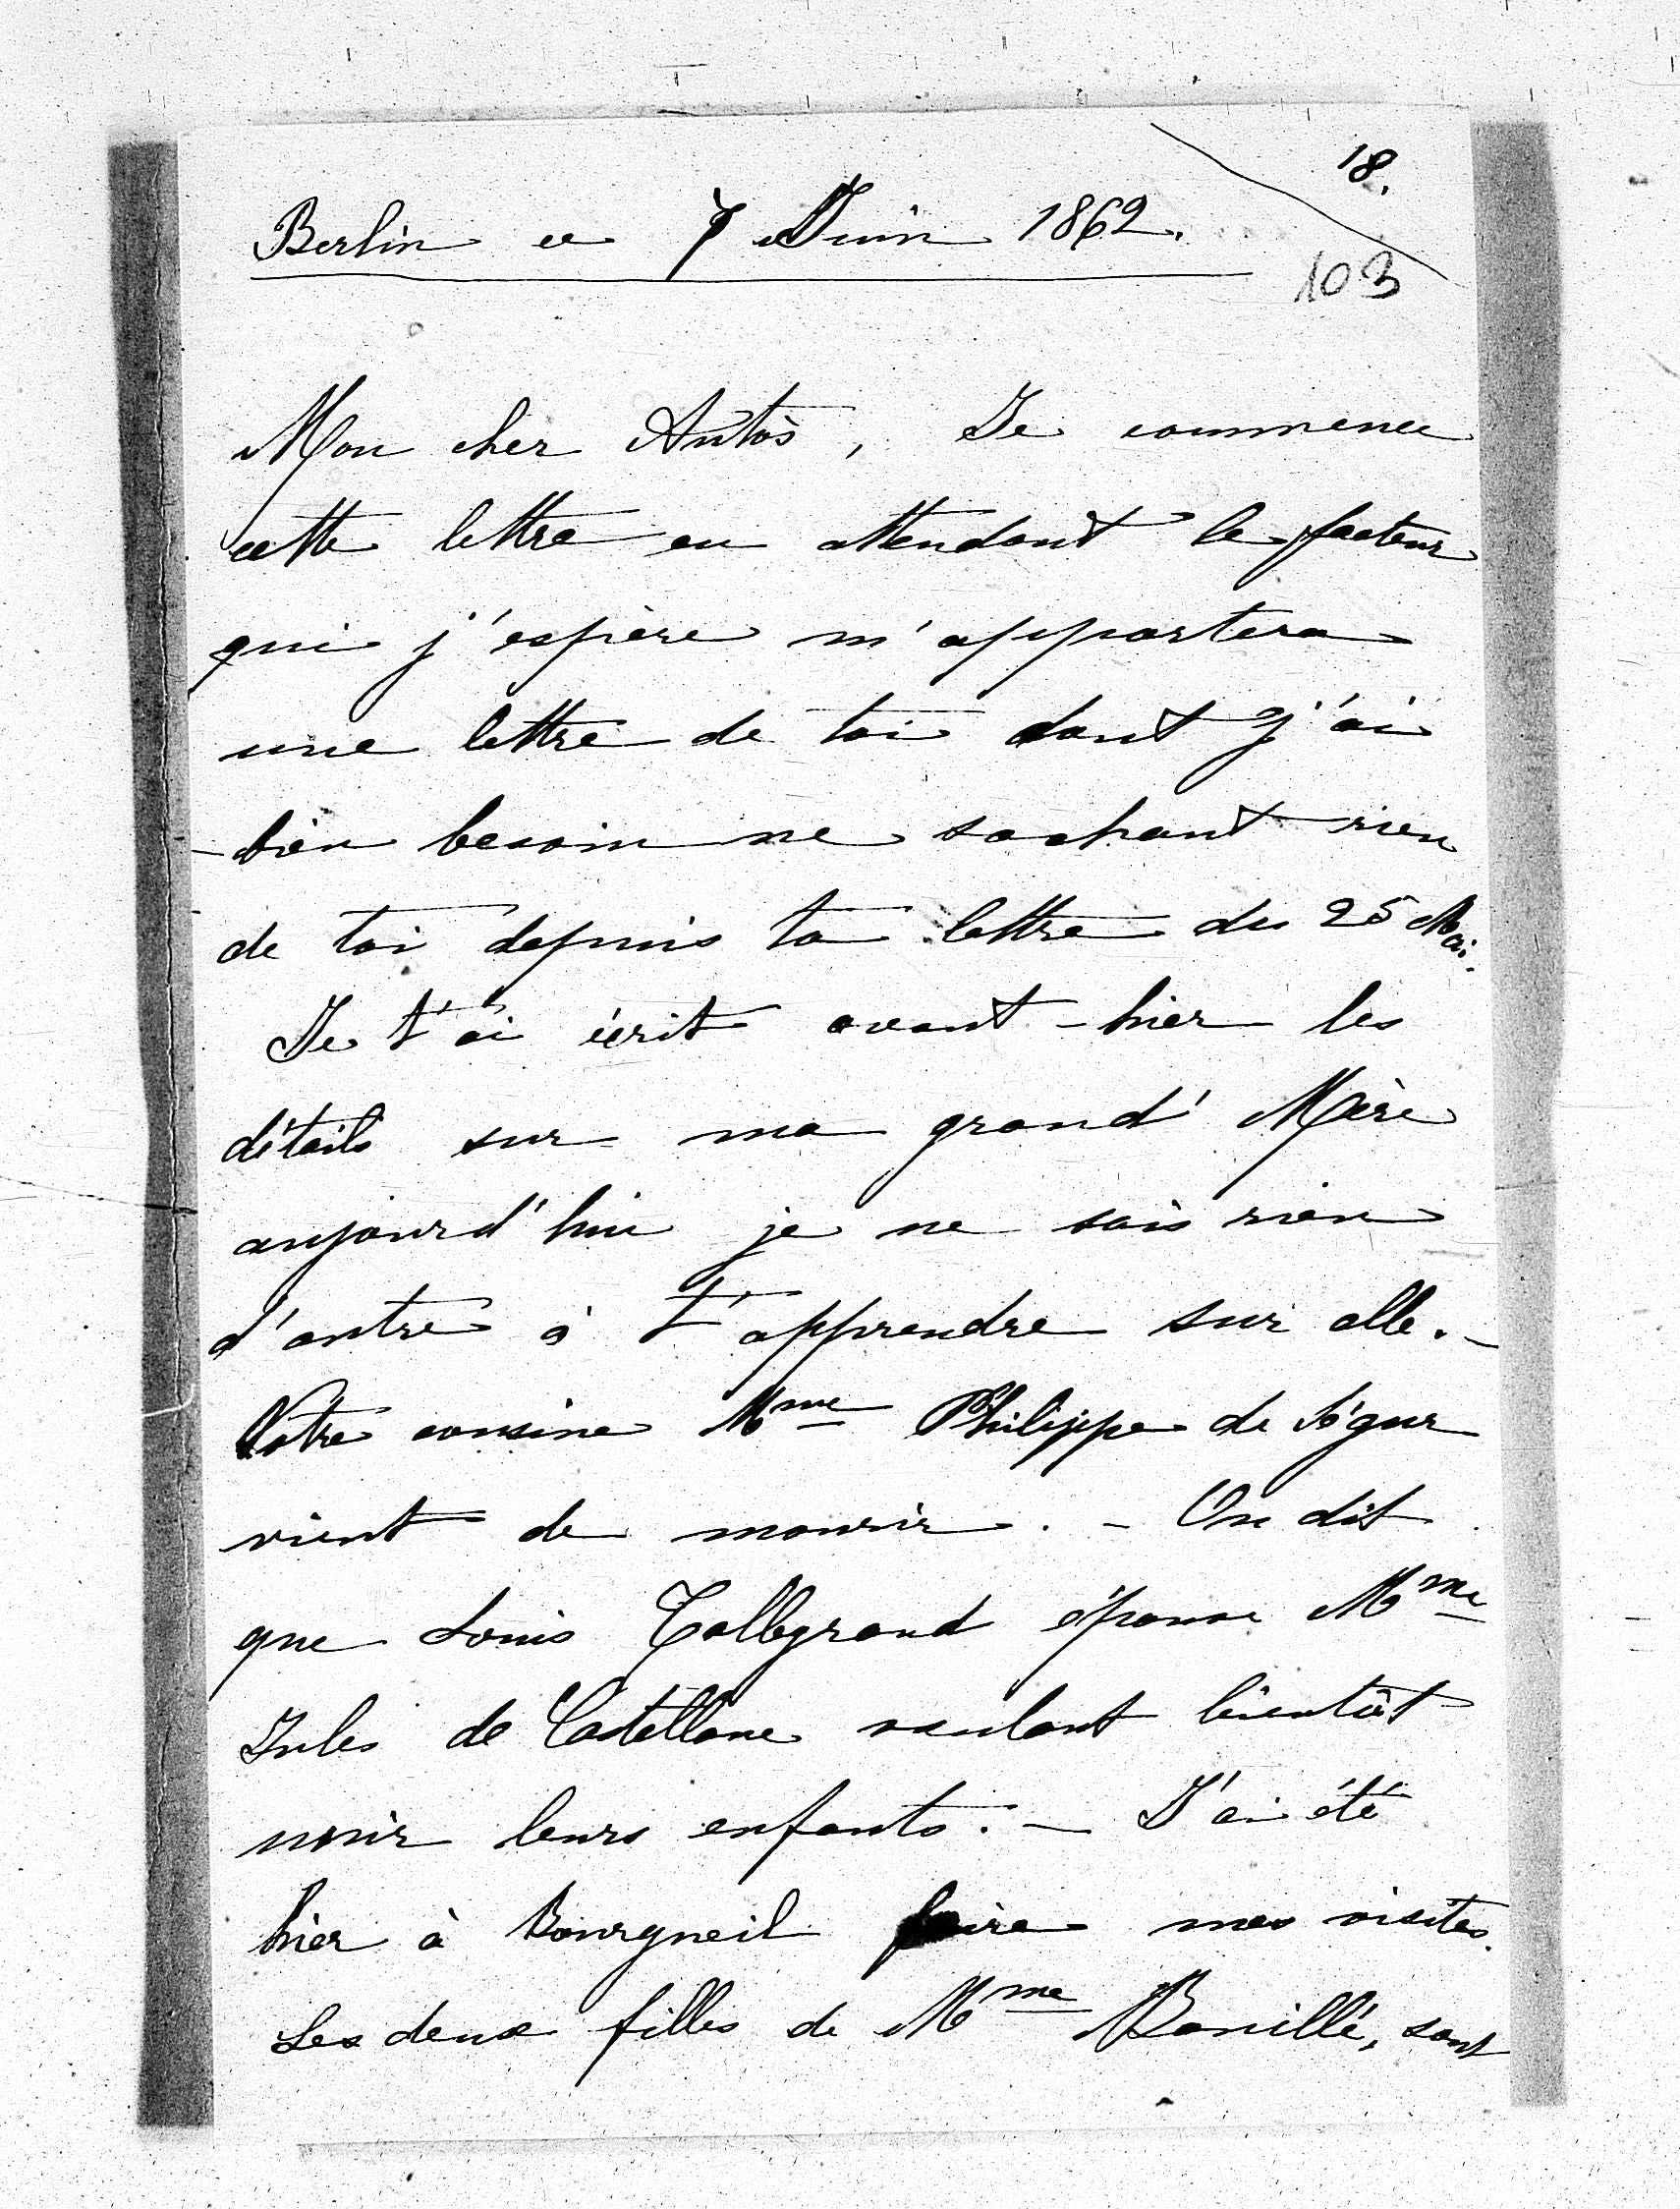 18.
Berlin ce 7 Juin 1862.
103
Mon cher Antós, Je commence
cette lettre en attendant le facteur
qui j'espère m'apportera
une lettre de toi dont j'ai
bien besoin ne sachant rien
de toi depuis ta lettre du 25 Mai.
Je t'ai écrit avant-hier les
détails sur ma grand' Mère
aujourd'hui je ne sais rien
d'autre à t'apprendre sur elle. –
Votre cousine Mme Philippe de Ségur
vient de mourir. – On dit
que Louis Talleyrand épouse Mme
Jules de Castellane voulant bientôt
unir leurs enfants. – J'ai été
hier à Bourgueil faire mes visites.
Les deux filles de Mme Bouillé, sont